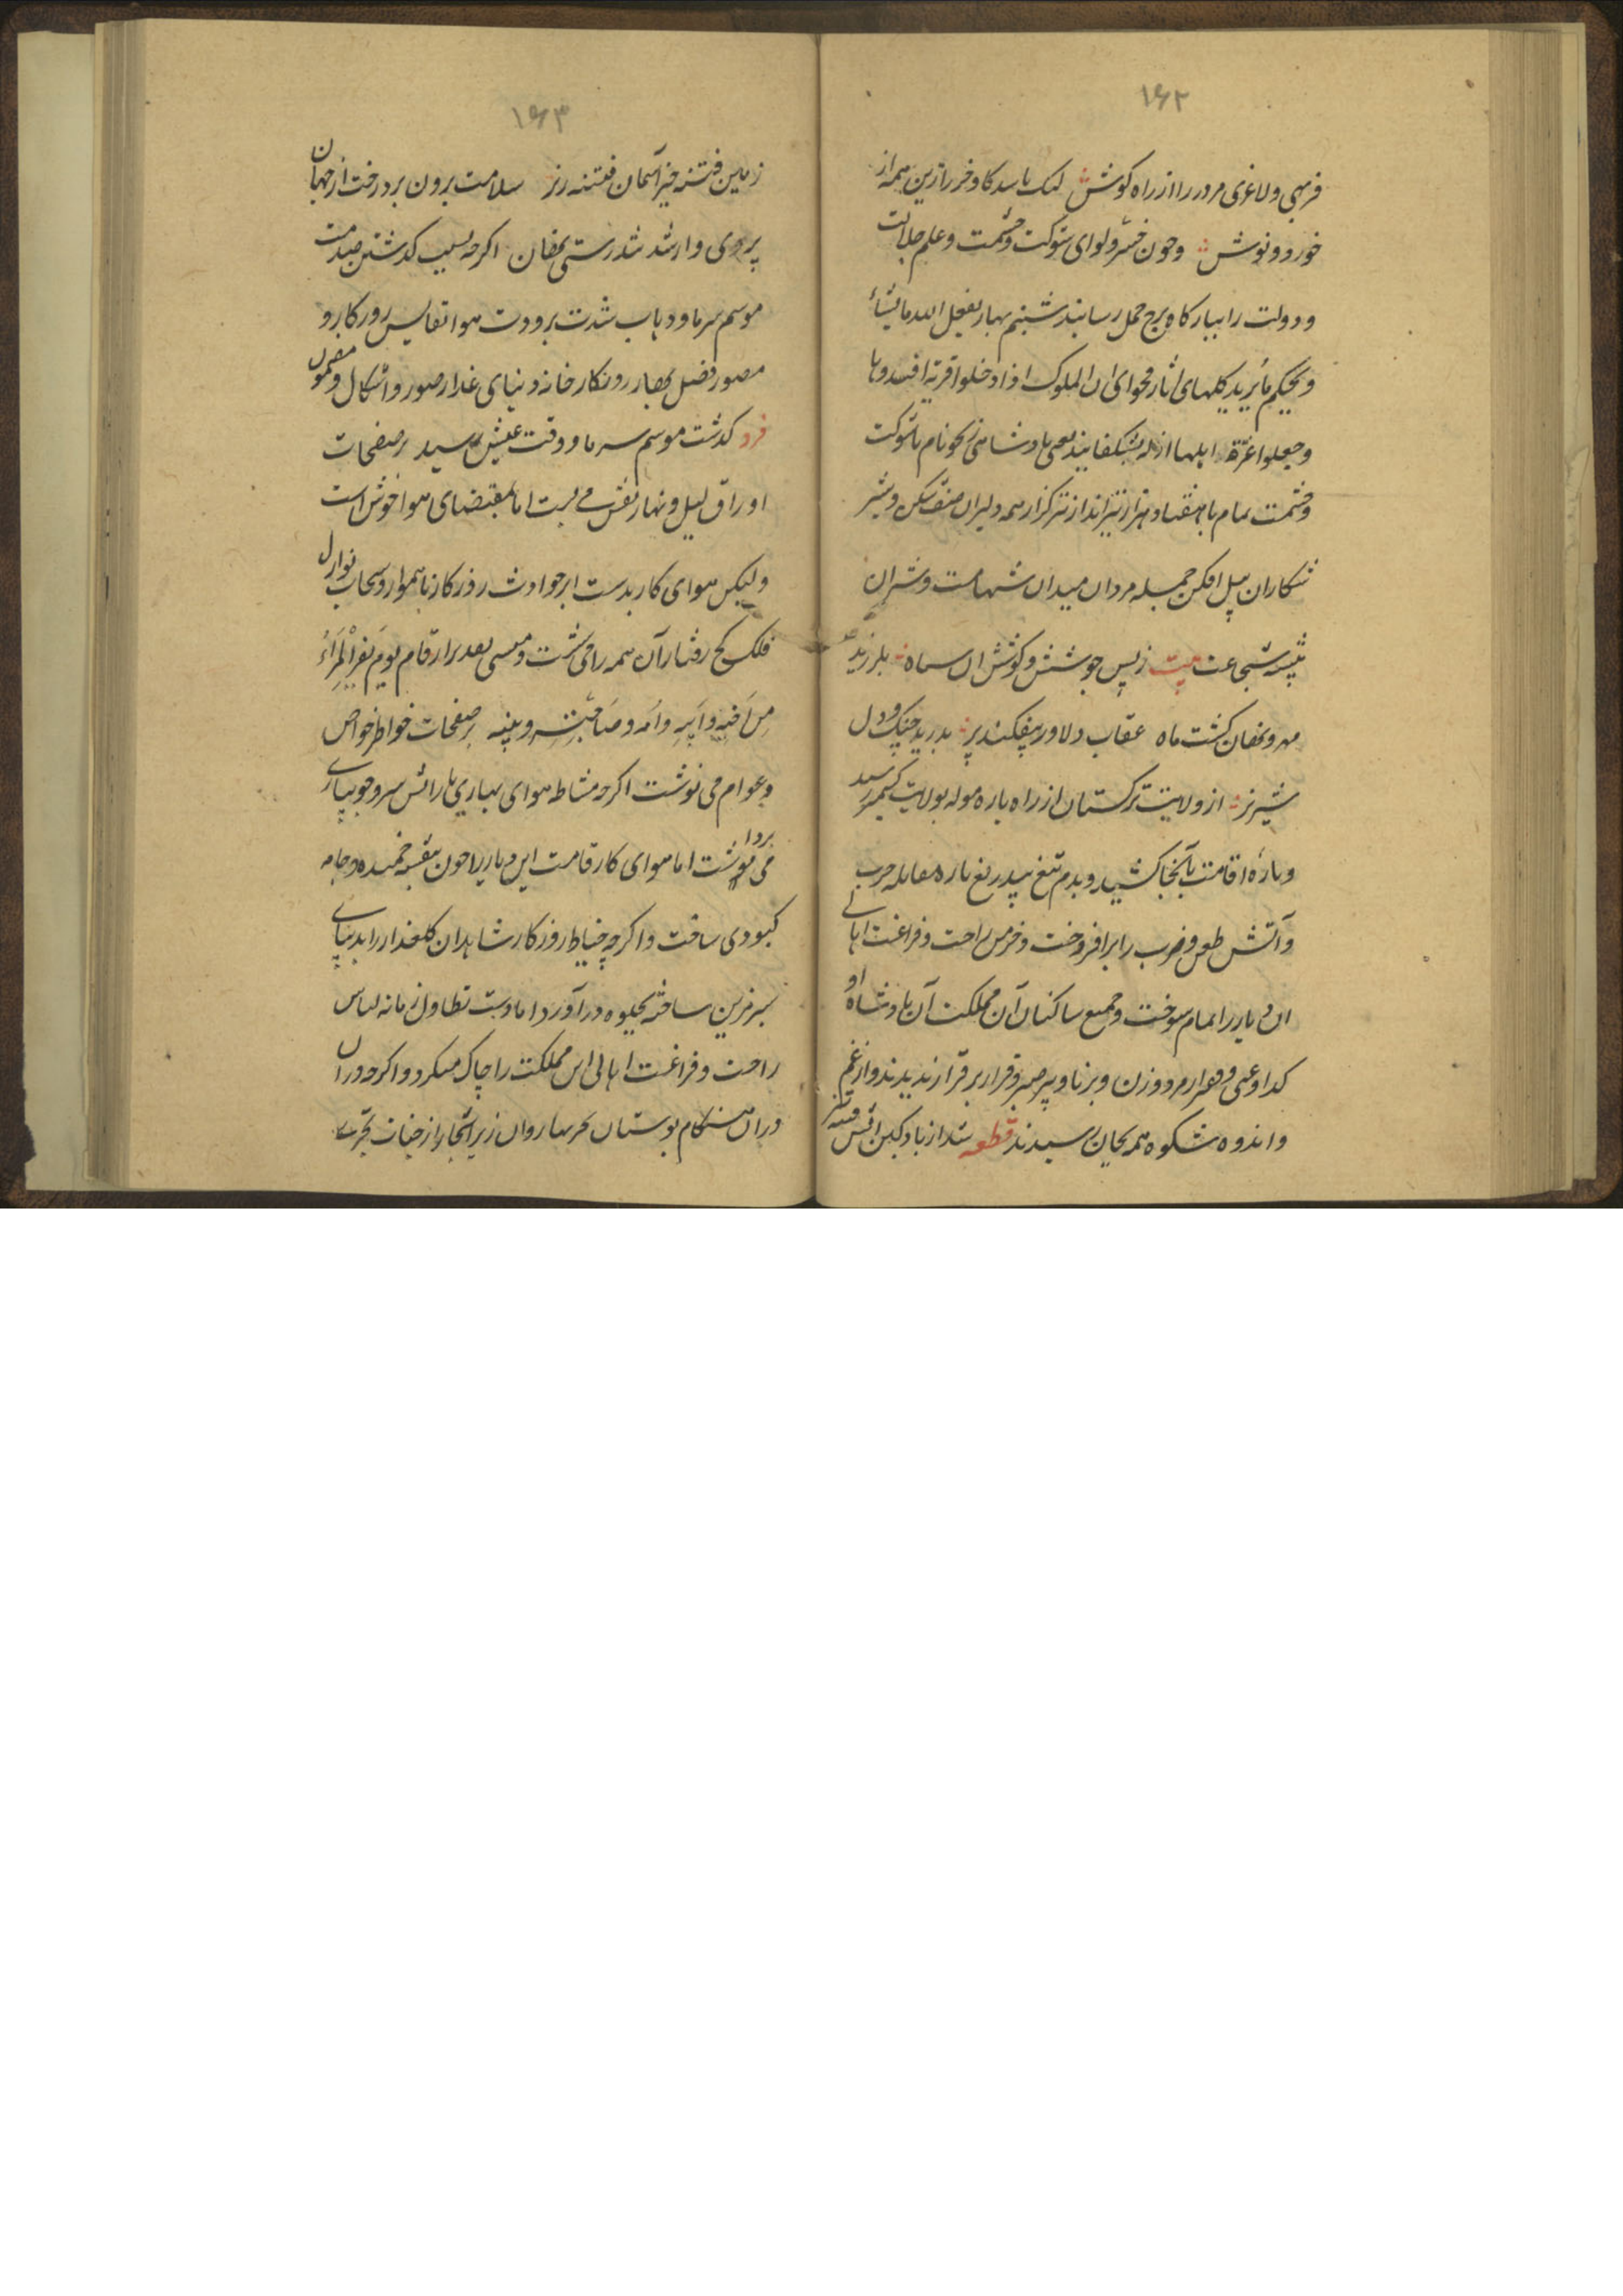 ۱۶۲
فربهی ولاغری مرور را از راه کوشش لیک باشد کاو خر را زین همه از
خورو و نوش وچون خسرو لوای شوکت وحشمت وعلم جلالت
ودولت را ببارکاه برج حمل رسانید شبنم بهار یفعل الله مایشاء
ویحکم مایرید کلهای اثار فحوای ان الملوک اذا دخلوا قریة افسدوها
وجعلوا اعزة اهلها اذله بشکفانید یعنی پادشاهی نکو نام باشوکت
وحشمت تمام باهفتاد هزار تیرانداز ترکزار همه دلیران صف شکن وشیر
شکاران پیل افکن جمله مردان میدان شهامت وشیران
بیشه شجاعت بیت زبس جوشش وکوشش ان سپاه بلرزید
مهر ونهان کشت ماه عقاب دلاور بیفکند پر بدرید چنک ودل
شیر نر از ولایت ترکستان از راه باره موله بولایت کشمیر رسید
وباره اقامت بآنجا کشید وبدم تیغ بیدریغ باره مقابله حرب
وآتش طعن وضرب را برافروخت وخرمن راحت وفراغت اهالی
ان دیار را تمام سوخت وجمیع ساکنان آن مملکت آن پادشاه او
کدا وغنی وهزار مرد وزن وبرنا وپیر صبر وقرار برقرار ندیدند واز غم
واندوه شکوه همه بجان رسیدند قطعه شد از باد کین آتش فتنه تیز
۱۶۳
زمین فتنه خیز آسمان فتنه ریز سلامت برون برد رخت از جهان
پری وار شد تندرستی نهان اکرچه بسبب کذشتن صدمت
موسم سرما وذهاب شدت برودت هوا نقاش روزکار و
مصور فضل بهار در نکارخانه دنیای غدار صور واشکال ومضمون
فرد کذشت موسم سرما ووقت عیش رسید بر صفحات
اوراق لیل ونهار نقش می بست اما بمقتضای هوا خوش است
ولیکن هوای کار بدست ابر حوادث روزکار ناهموار وسحاب نوازل
فلک کج رفتار آن همه را می شست ومنسی بعد بر ارقام یوم یفر المرء
من اخیه وابیه وامه وصاحبته وبنیه بر صفحات خواطر خواص
وعوام می نوشت اکرچه مشاطه هوای بهاری بارائش سرو جویباری
می پرداخت اما هوای کار قامت این دیار را چون بنفشه خمیده وجامه
کبودی ساخت واکرچه خیاط روزکار شاهدان کلعذار را بدیبای
سبز مزین ساخته بجلوه درآورد اما دست تطاول زمانه لباس
راحت وفراغت اهالی این مملکت را چاک میکرد واکرچه دران
دران هنکام بوستان بحر بهار روان زیر اشجار از جنات تجری